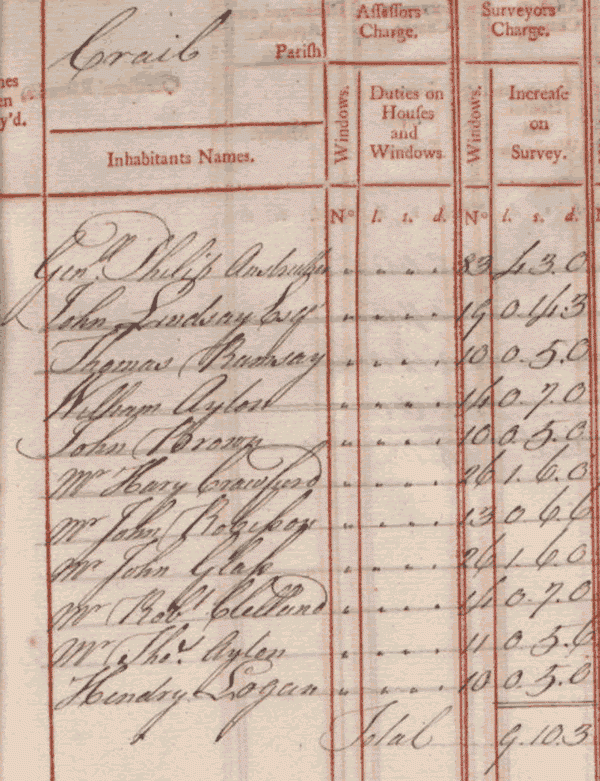 Crail Pariſh
Aſſeſſors Charge.
Surveyors Charge.
nes
en
y'd.
Inhabitants Names.
Windows.
Duties on
Houſes
and
Windows
Windows.
Increaſe
on
Survey.
No l. s. d. No l. s. d.
Genll. Philip Anstruther " " " " 83 4. 3. 0
John Lindsay Esqr " " " " 19 0. 14. 3
Thomas Ramsay " " " " 10 0. 5. 0
William Ayton " " " " 14 0. 7. 0
John Brown " " " " 10 0. 5. 0
Mr Hary Crawfurd " " " " 26 1. 6. 0
Mr John Robiſon " " " " 13 0. 6. 6
Mr John Glaſs " " " " 26 1. 6. 0
Mr Robt Clelland " " " " 14 0. 7. 0
Mr Thos. Ayton " " " " 11 0. 5. 6
Hendry Logan " " " " 10 0. 5. 0
Total 9. 10. 3